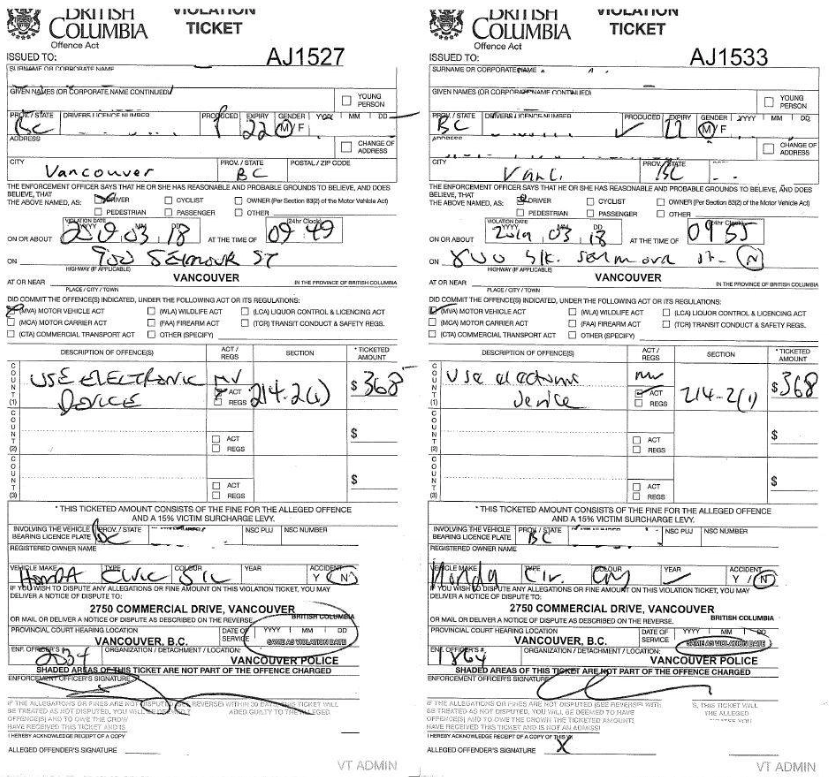 BRITISH COLUMBIA
Offence Act
VIOLATION TICKET
ISSUED TO:
AJ1527
SURNAME OR CORPORATE NAME
GIVEN NAMES (OR CORPORATE NAME CONTINUED)
YOUNG PERSON
PROV./STATE DRIVERS LICENCE NUMBER PRODUCED EXPIRY GENDER YYYY MM DD
BC 22 M F
ADDRESS
CHANGE OF ADDRESS
CITY PROV./STATE POSTAL/ZIP CODE
Vancouver BC
THE ENFORCEMENT OFFICER SAYS THAT HE OR SHE HAS REASONABLE AND PROBABLE GROUNDS TO BELIEVE, AND DOES
BELIEVE, THAT
THE ABOVE NAMED, AS: DRIVER CYCLIST OWNER (Per Section 83(2) of the Motor Vehicle Act)
PEDESTRIAN PASSENGER OTHER
VIOLATION DATE YYYY MM DD (24hr Clock)
ON OR ABOUT 2019 03 18 AT THE TIME OF 09 49
ON 900 SEYMOUR ST
HIGHWAY (IF APPLICABLE)
AT OR NEAR VANCOUVER IN THE PROVINCE OF BRITISH COLUMBIA
PLACE / CITY / TOWN
DID COMMIT THE OFFENCE(S) INDICATED, UNDER THE FOLLOWING ACT OR ITS REGULATIONS:
(MVA) MOTOR VEHICLE ACT (WLA) WILDLIFE ACT (LCA) LIQUOR CONTROL & LICENCING ACT
(MCA) MOTOR CARRIER ACT (FAA) FIREARM ACT (TCR) TRANSIT CONDUCT & SAFETY REGS.
(CTA) COMMERCIAL TRANSPORT ACT OTHER (SPECIFY)
DESCRIPTION OF OFFENCE(S) ACT / REGS SECTION * TICKETED AMOUNT
COUNT (1) USE ELECTRONIC DEVICE MV ACT REGS 214.2(1) $ 368
COUNT (2) ACT REGS $
COUNT (3) ACT REGS $
* THIS TICKETED AMOUNT CONSISTS OF THE FINE FOR THE ALLEGED OFFENCE
AND A 15% VICTIM SURCHARGE LEVY.
INVOLVING THE VEHICLE BEARING LICENCE PLATE PROV / STATE BC NSC PUJ NSC NUMBER
REGISTERED OWNER NAME
VEHICLE MAKE TYPE COLOUR YEAR ACCIDENT
HONDA CIVIC SIL Y N
IF YOU WISH TO DISPUTE ANY ALLEGATIONS OR FINE AMOUNT ON THIS VIOLATION TICKET, YOU MAY
DELIVER A NOTICE OF DISPUTE TO:
2750 COMMERCIAL DRIVE, VANCOUVER
OR MAIL OR DELIVER NOTICE OF DISPUTE AS DESCRIBED ON THE REVERSE. BRITISH COLUMBIA
PROVINCIAL COURT HEARING LOCATION DATE OF SERVICE YYYY MM DD
VANCOUVER, B.C. SAME AS VIOLATION DATE
ENF. OFFICER'S # ORGANIZATION / DETACHMENT / LOCATION:
2534 VANCOUVER POLICE
SHADED AREAS OF THIS TICKET ARE NOT PART OF THE OFFENCE CHARGED
ENFORCEMENT OFFICER'S SIGNATURE
IF THE ALLEGATIONS OR FINES ARE NOT DISPUTED (SEE REVERSE) WITHIN 30 DAYS, THIS TICKET WILL
BE TREATED AS NOT DISPUTED, YOU WILL BE
OFFENCE(S) AND TO OWE THE CROWN
HAVE RECEIVED THIS TICKET AND IS
I HEREBY ACKNOWLEDGE RECEIPT OF A COPY
ALLEGED OFFENDER'S SIGNATURE
VT ADMIN
BRITISH COLUMBIA
Offence Act
VIOLATION TICKET
ISSUED TO:
AJ1533
SURNAME OR CORPORATE NAME
GIVEN NAMES (OR CORPORATE NAME CONTINUED)
YOUNG PERSON
PROV./STATE DRIVERS LICENCE NUMBER PRODUCED EXPIRY GENDER YYYY MM DD
BC 22 M F
ADDRESS
CHANGE OF ADDRESS
CITY PROV./STATE
Vanc. BC
THE ENFORCEMENT OFFICER SAYS THAT HE OR SHE HAS REASONABLE AND PROBABLE GROUNDS TO BELIEVE, AND DOES
BELIEVE, THAT
THE ABOVE NAMED, AS: DRIVER CYCLIST OWNER (Per Section 83(2) of the Motor Vehicle Act)
PEDESTRIAN PASSENGER OTHER
VIOLATION DATE YYYY MM DD (24hr Clock)
ON OR ABOUT 2019 03 18 AT THE TIME OF 0955
ON 800 blk. Seymour st. N
HIGHWAY (IF APPLICABLE)
AT OR NEAR VANCOUVER IN THE PROVINCE OF BRITISH COLUMBIA
PLACE / CITY / TOWN
DID COMMIT THE OFFENCE(S) INDICATED, UNDER THE FOLLOWING ACT OR ITS REGULATIONS:
(MVA) MOTOR VEHICLE ACT (WLA) WILDLIFE ACT (LCA) LIQUOR CONTROL & LICENCING ACT
(MCA) MOTOR CARRIER ACT (FAA) FIREARM ACT (TCR) TRANSIT CONDUCT & SAFETY REGS.
(CTA) COMMERCIAL TRANSPORT ACT OTHER (SPECIFY)
DESCRIPTION OF OFFENCE(S) ACT / REGS SECTION * TICKETED AMOUNT
COUNT (1) Use electronic device MV ACT REGS 214-2(1) $368
COUNT (2) ACT REGS $
COUNT (3) ACT REGS $
* THIS TICKETED AMOUNT CONSISTS OF THE FINE FOR THE ALLEGED OFFENCE
AND A 15% VICTIM SURCHARGE LEVY.
INVOLVING THE VEHICLE BEARING LICENCE PLATE PROV / STATE BC NSC PUJ NSC NUMBER
REGISTERED OWNER NAME
VEHICLE MAKE TYPE COLOUR YEAR ACCIDENT
Honda Civ. Y / N
IF YOU WISH TO DISPUTE ANY ALLEGATIONS OR FINE AMOUNT ON THIS VIOLATION TICKET, YOU MAY
DELIVER A NOTICE OF DISPUTE TO:
2750 COMMERCIAL DRIVE, VANCOUVER
OR MAIL OR DELIVER NOTICE OF DISPUTE AS DESCRIBED ON THE REVERSE. BRITISH COLUMBIA
PROVINCIAL COURT HEARING LOCATION DATE OF SERVICE YYYY MM DD
VANCOUVER, B.C. SAME AS VIOLATION DATE
ENF. OFFICER'S #. ORGANIZATION / DETACHMENT / LOCATION:
1864 VANCOUVER POLICE
SHADED AREAS OF THIS TICKET ARE NOT PART OF THE OFFENCE CHARGED
ENFORCEMENT OFFICER'S SIGNATURE
IF THE ALLEGATIONS OR FINES ARE NOT DISPUTED (SEE REVERSE) S, THIS TICKET WILL
BE TREATED AS NOT DISPUTED, YOU WILL BE DEEMED TO HAVE THE ALLEGED
OFFENCE(S) AND TO OWE THE CROWN THE TICKETED AMOUNT
HAVE RECEIVED THIS TICKET AND IS NOT AN ADMISSI
I HEREBY ACKNOWLEDGE RECEIPT OF A COPY OF THIS
ALLEGED OFFENDER'S SIGNATURE X
VT ADMIN